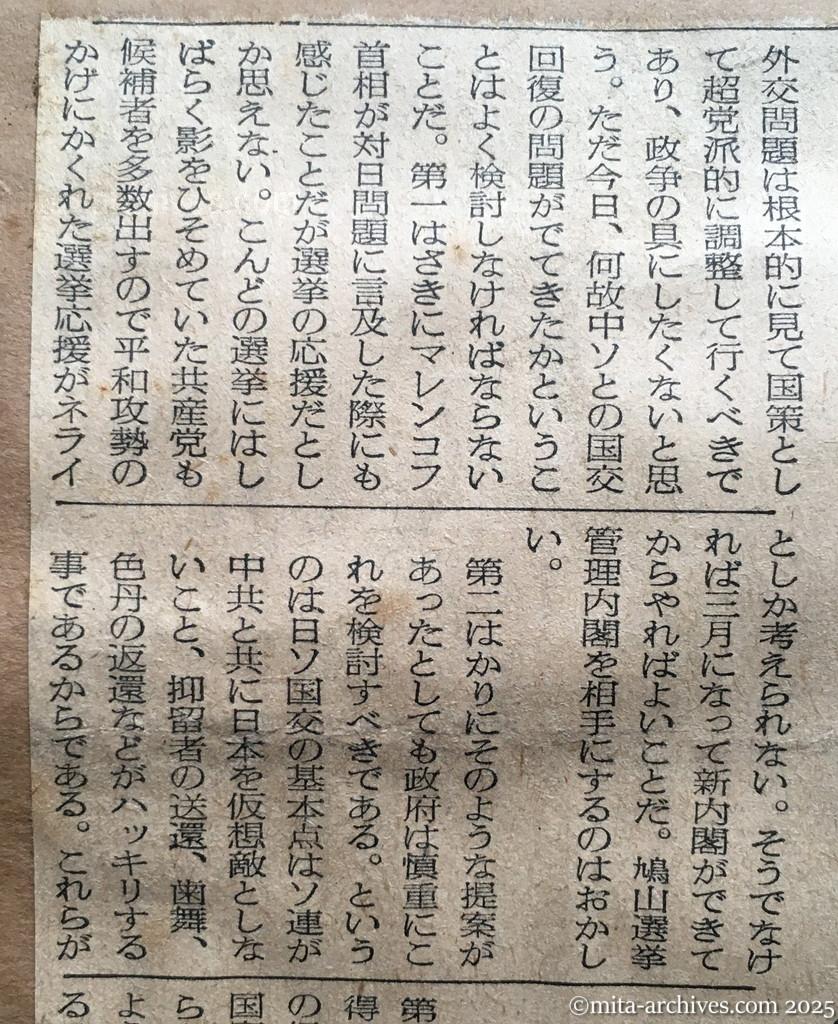 外交問題は根本的に見て国策とし
て超党派的に調整して行くべきで
あり、政争の具にしたくないと思
う。ただ今日、何故中ソとの国交
回復の問題がでてきたかというこ
とはよく検討しなければならない
ことだ。第一はさきにマレンコフ
首相が対日問題に言及した際にも
感じたことだが選挙の応援だとし
か思えない。こんどの選挙にはし
ばらく影をひそめていた共産党も
候補者を多数出すので平和攻勢の
かげにかくれた選挙応援がネライ
としか考えられない。そうでなけ
れば三月になって新内閣ができて
からやればよいことだ。鳩山選挙
管理内閣を相手にするのはおかし
い。
第二はかりにそのような提案が
あったとしても政府は慎重にこ
れを検討すべきである。という
のは日ソ国交の基本点はソ連が
中共と共に日本を仮想敵としな
いこと、抑留者の送還、歯舞、
色丹の返還などがハッキリする
事であるからである。これらが
第
得
の
国
ら
よ
る
©mita-archives.com 2025